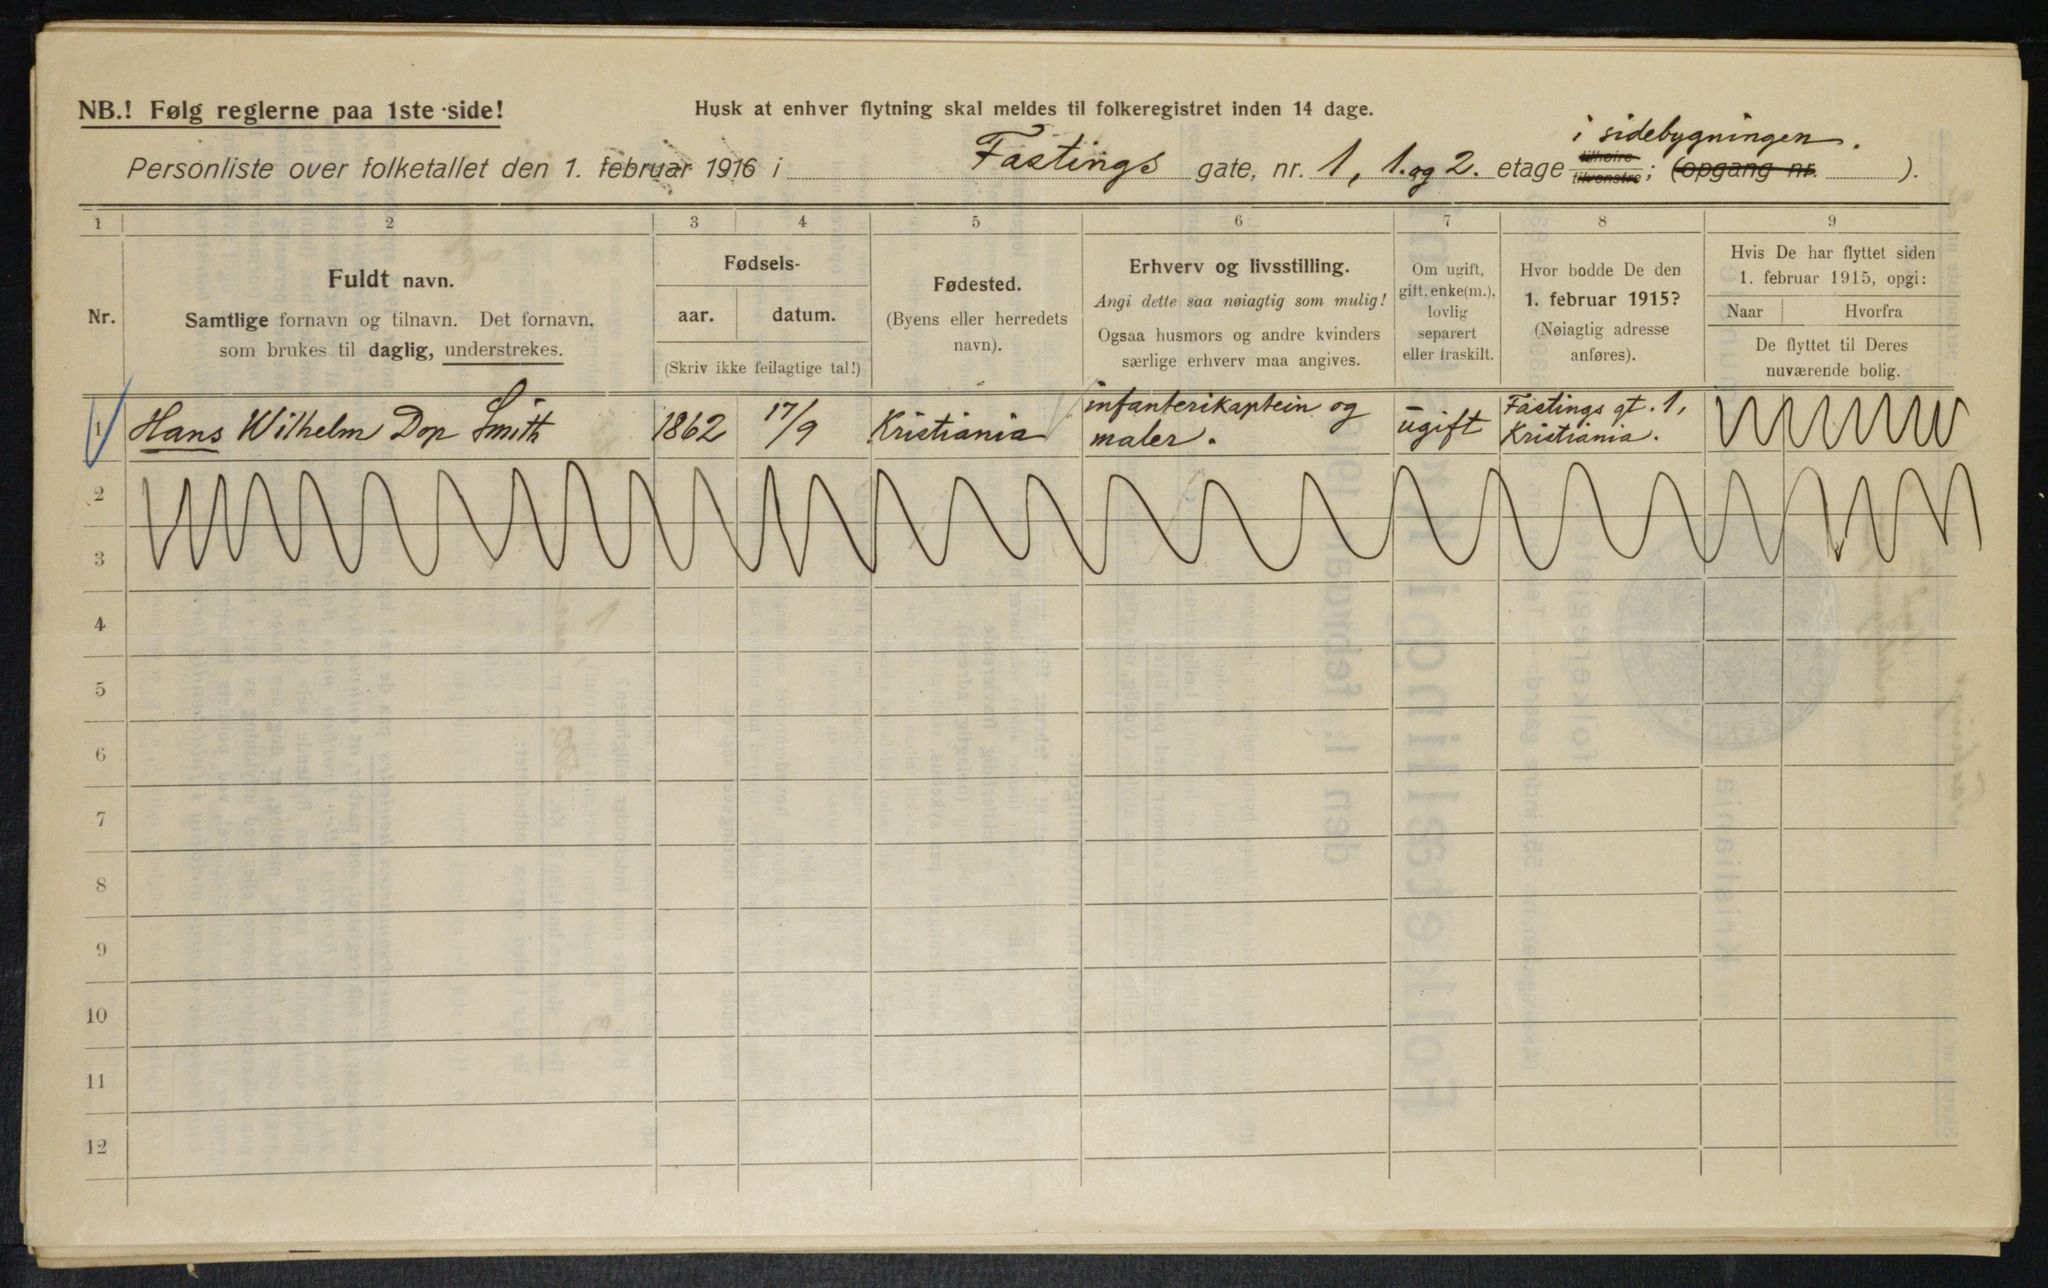 NB.! Følg reglerne paa 1ste side!
Husk at enhver flytning skal meldes til folkeregistret inden 14 dage.
i sidebygningen.
Personliste over folketallet den 1. februar 1916 i Fastings gate, nr. 1, 1. og 2. etage tilhøire tilvenstre; (opgang nr. ).
1 2 3 4 5 6 7 8 9
Nr.
Fuldt navn.
Samtlige fornavn og tilnavn. Det fornavn,
som brukes til daglig, understrekes.
Fødsels-
aar. datum.
(Skriv ikke feilagtige tal!)
Fødested.
(Byens eller herredets
navn).
Erhverv og livsstilling.
Angi dette saa nøiagtig som mulig!
Ogsaa husmors og andre kvinders
særlige erhverv maa angives.
Om ugift,
gift, enke(m.),
lovlig
separert
eller fraskilt.
Hvor bodde De den
1. februar 1915?
(Nøiagtig adresse
anføres).
Hvis De har flyttet siden
1. februar 1915, opgi:
Naar Hvorfra
De flyttet til Deres
nuværende bolig.
1 Hans Wilhelm Dop Smith 1862 17/9 Kristiania infanterikaptein og maler. ugift Fastings gt. 1, Kristiania.
2
3
4
5
6
7
8
9
10
11
12